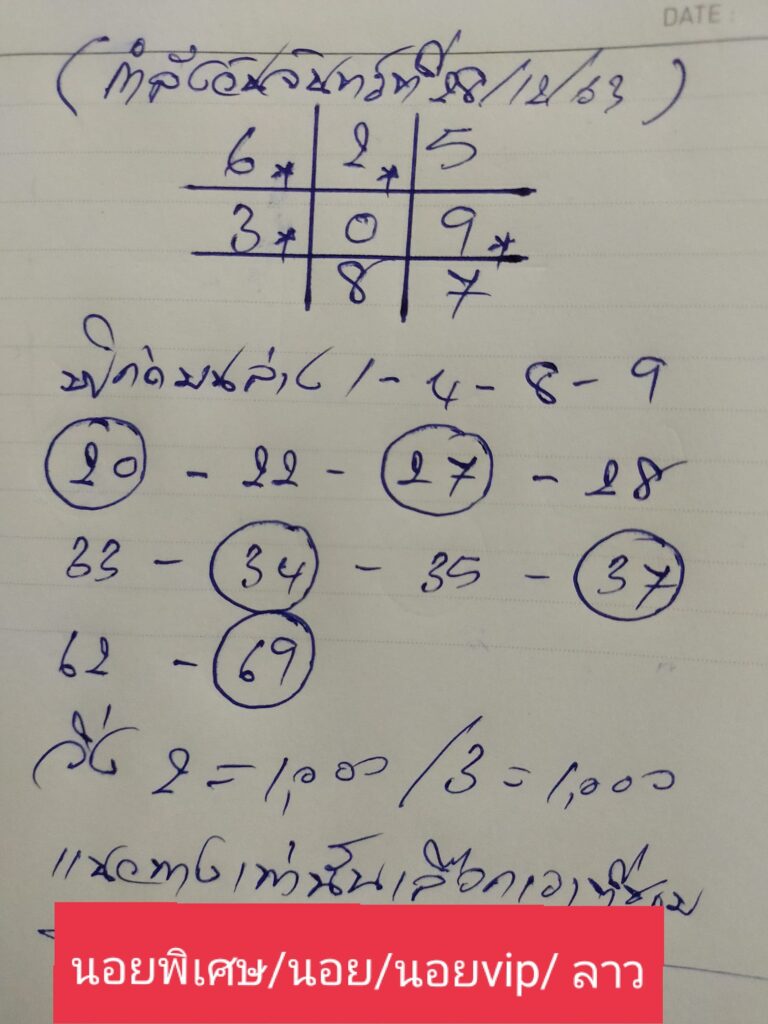 DATE :
(กำลังวันจันทร์ที่ 28/12/63)
6* 2* 5
3* 0 9*
8 7
พิกัดบนล่าง 1-4-8-9
20 - 22 - 27 - 28
33 - 34 - 35 - 37
62 - 69
วิ่ง 2=1,000/3=1,000
แนวทางเท่านั้นเลือกเอาที่ชอบ
นอยพิเศษ/นอย/นอยvip/ ลาว